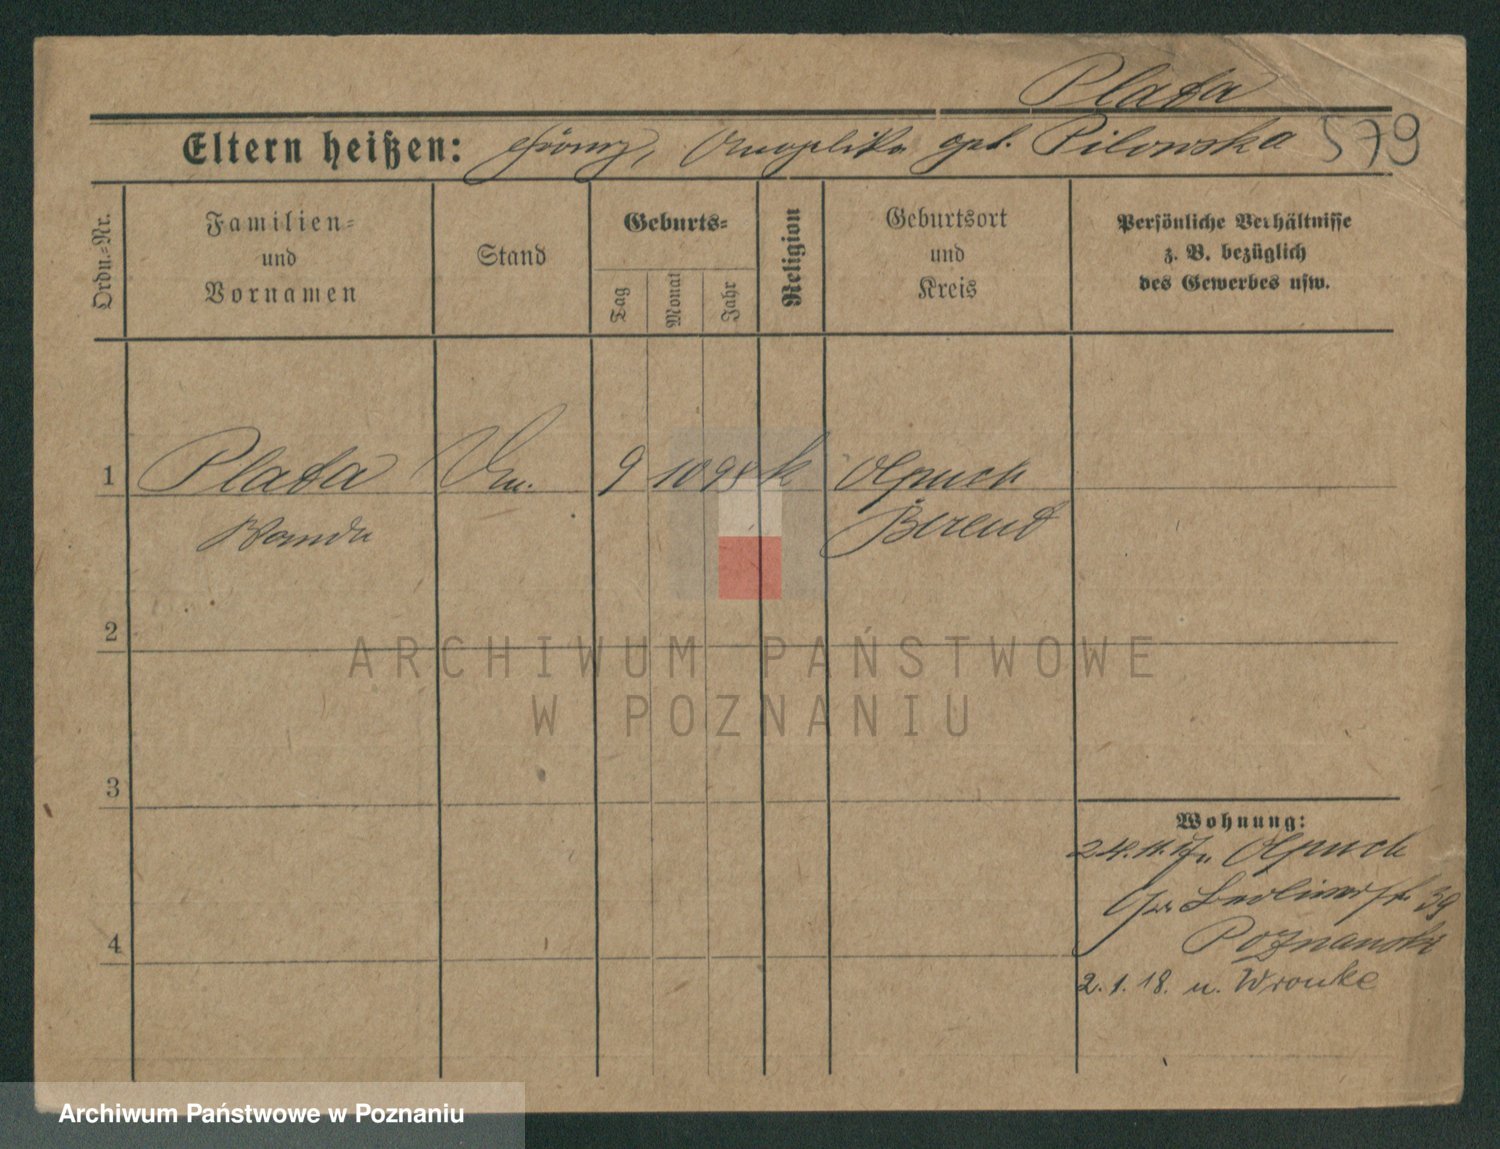 Plata
Eltern heißen: Franz, Angelika geb. Pilowska 579
Ordn.-Nr.
Familien-
und
Vornamen
Stand
Geburts-
Tag
Monat
Jahr
Religion
Geburtsort
und
Kreis
Persönliche Verhältnisse
z. B. bezüglich
des Gewerbes usw.
1 Plata 9 10 98 k Olpuch
Wanda Berent
2
3
4
Wohnung:
24.11.17 n Olpuch
Berlinerstr. 39
Poznanski
2.1.18. n. Wronke
ARCHIWUM PAŃSTWOWE
W POZNANIU
Archiwum Państwowe w Poznaniu